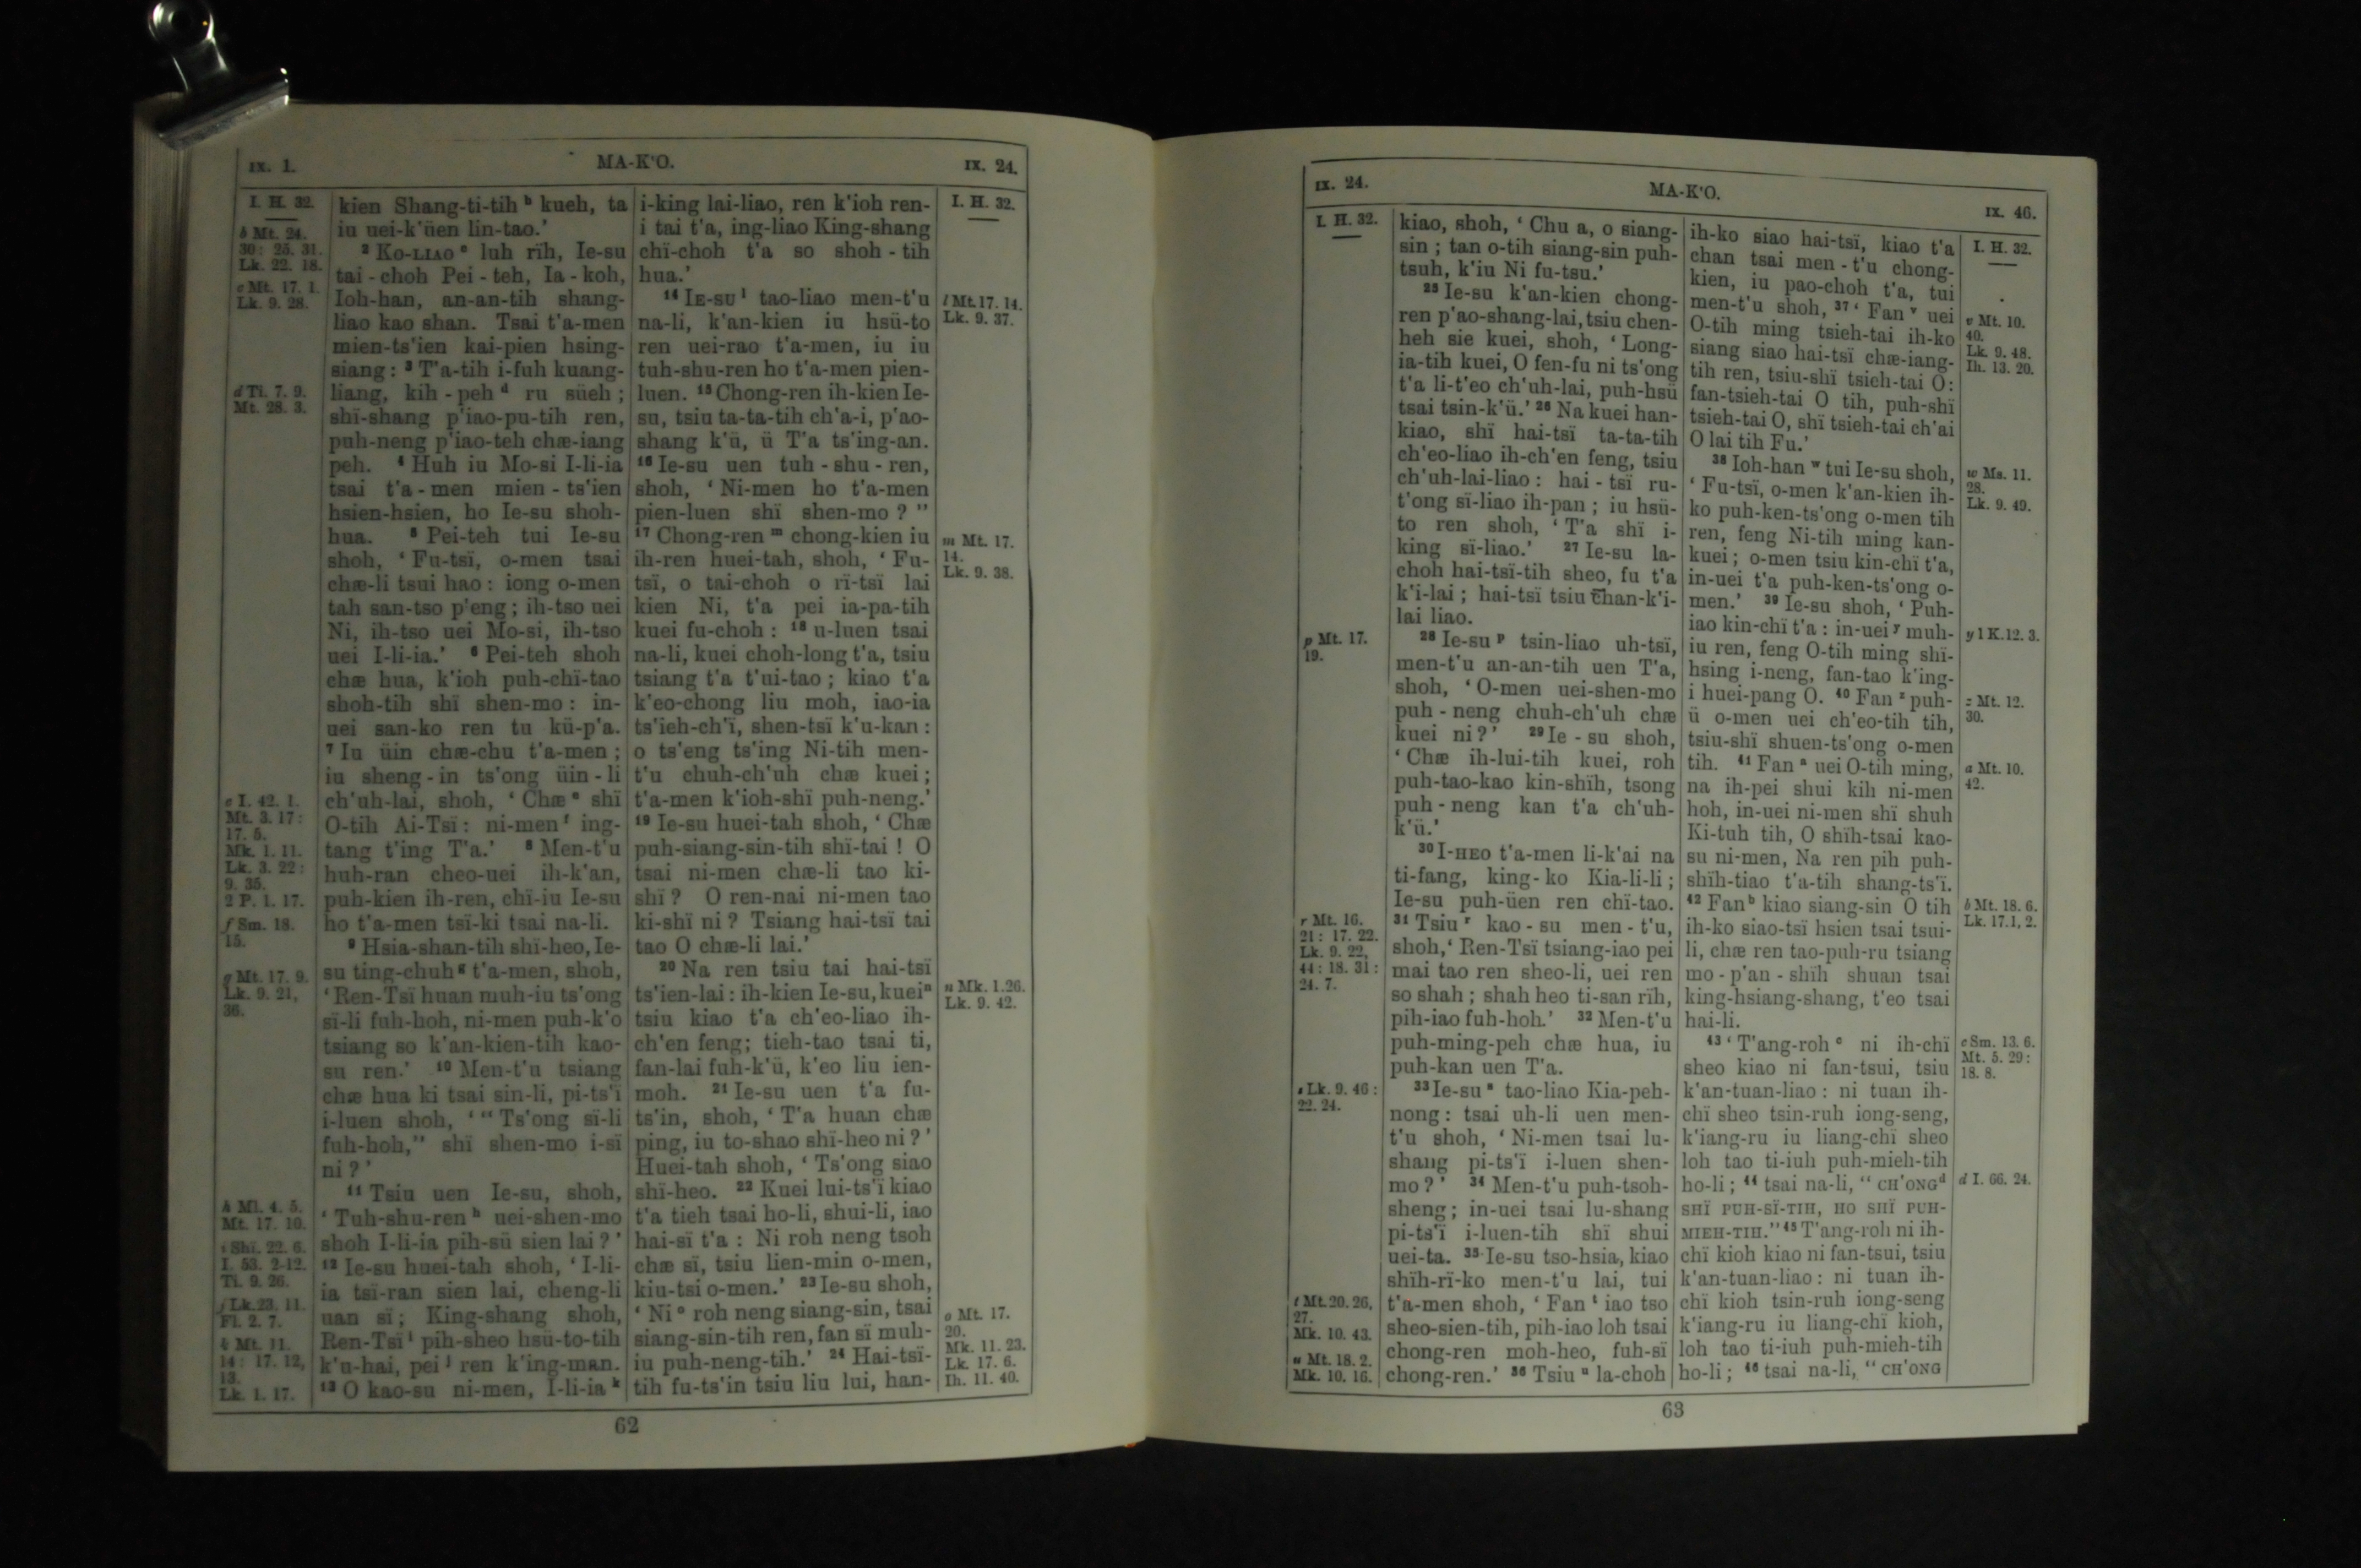 IX. 1.
MA-K'O.
IX. 24.
I. H. 32.
b Mt. 24.
30: 25. 31.
Lk. 22. 18.
c Mt. 17. 1.
Lk. 9. 28.
d Ti. 7. 9.
Mt. 28. 3.
e I. 42. 1.
Mt. 3. 17:
17. 5.
Mk. 1. 11.
Lk. 3. 22:
9. 35.
2 P. 1. 17.
f Sm. 18.
15.
g Mt. 17. 9.
Lk. 9. 21,
36.
h Ml. 4. 5.
Mt. 17. 10.
i Shï. 22. 6.
I. 53. 2-12.
Ti. 9. 26.
j Lk. 23. 11.
Fl. 2. 7.
k Mt. 11.
14: 17. 12,
13.
Lk. 1. 17.
kien Shang-ti-tih b kueh, ta
iu uei-k'üen lin-tao.'
2 Ko-LIAO c luh rïh, Ie-su
tai-choh Pei-teh, Ia-koh,
Ioh-han, an-an-tih shang-
liao kao shan. Tsai t'a-men
mien-ts'ien kai-pien hsing-
siang: 3 T'a-tih i-fuh kuang-
liang, kih-peh d ru süeh;
shï-shang p'iao-pu-tih ren,
puh-neng p'iao-teh chæ-iang
peh. 4 Huh iu Mo-si I-li-ia
tsai t'a-men mien-ts'ien
hsien-hsien, ho Ie-su shoh-
hua. 5 Pei-teh tui Ie-su
shoh, 'Fu-tsï, o-men tsai
chæ-li tsui hao: iong o-men
tah san-tso p'eng; ih-tso uei
Ni, ih-tso uei Mo-si, ih-tso
uei I-li-ia.' 6 Pei-teh shoh
chæ hua, k'ioh puh-chï-tao
shoh-tih shï shen-mo: in-
uei san-ko ren tu kü-p'a.
7 Iu üin chæ-chu t'a-men;
iu sheng-in ts'ong üin-li
ch'uh-lai, shoh, 'Chæ e shï
O-tih Ai-Tsï: ni-men f ing-
tang t'ing T'a.' 8 Men-t'u
huh-ran cheo-uei ih-k'an,
puh-kien ih-ren, chï-iu Ie-su
ho t'a-men tsï-ki tsai na-li.
9 Hsia-shan-tih shï-heo, Ie-
su ting-chuh g t'a-men, shoh,
'Ren-Tsï huan muh-iu ts'ong
sï-li fuh-hoh, ni-men puh-k'o
tsiang so k'an-kien-tih kao-
su ren.' 10 Men-t'u tsiang
chæ hua ki tsai sin-li, pi-ts'ï
i-luen shoh, '"Ts'ong sï-li
fuh-hoh," shï shen-mo i-sï
ni?'
11 Tsiu uen Ie-su, shoh,
'Tuh-shu-ren h uei-shen-mo
shoh I-li-ia pih-sü sien lai?'
12 Ie-su huei-tah shoh, 'I-li-
ia tsï-ran sien lai, cheng-li
uan sï; King-shang shoh,
Ren-Tsï i pih-sheo hsü-to-tih
k'u-hai, pei j ren k'ing-man.
13 O kao-su ni-men, I-li-ia k
i-king lai-liao, ren k'ioh ren-
i tai t'a, ing-liao King-shang
chï-choh t'a so shoh-tih
hua.'
14 IE-SU l tao-liao men-t'u
na-li, k'an-kien iu hsü-to
ren uei-rao t'a-men, iu iu
tuh-shu-ren ho t'a-men pien-
luen. 15 Chong-ren ih-kien Ie-
su, tsiu ta-ta-tih ch'a-i, p'ao-
shang k'ü, ü T'a ts'ing-an.
16 Ie-su uen tuh-shu-ren,
shoh, 'Ni-men ho t'a-men
pien-luen shï shen-mo?"
17 Chong-ren m chong-kien iu
ih-ren huei-tah, shoh, 'Fu-
tsï, o tai-choh o rï-tsï lai
kien Ni, t'a pei ia-pa-tih
kuei fu-choh: 18 u-luen tsai
na-li, kuei choh-long t'a, tsiu
tsiang t'a t'ui-tao; kiao t'a
k'eo-chong liu moh, iao-ia
ts'ieh-ch'ï, shen-tsï k'u-kan:
o ts'eng ts'ing Ni-tih men-
t'u chuh-ch'uh chæ kuei;
t'a-men k'ioh-shï puh-neng.'
19 Ie-su huei-tah shoh, 'Chæ
puh-siang-sin-tih shï-tai! O
tsai ni-men chæ-li tao ki-
shï? O ren-nai ni-men tao
ki-shï ni? Tsiang hai-tsï tai
tao O chæ-li lai.'
20 Na ren tsiu tai hai-tsï
ts'ien-lai: ih-kien Ie-su, kuei n
tsiu kiao t'a ch'eo-liao ih-
ch'en feng; tieh-tao tsai ti,
fan-lai fuh-k'ü, k'eo liu ien-
moh. 21 Ie-su uen t'a fu-
ts'in, shoh, 'T'a huan chæ
ping, iu to-shao shï-heo ni?'
Huei-tah shoh, 'Ts'ong siao
shï-heo. 22 Kuei lui-ts'ï kiao
t'a tieh tsai ho-li, shui-li, iao
hai-sï t'a: Ni roh neng tsoh
chæ sï, tsiu lien-min o-men,
kiu-tsi o-men.' 23 Ie-su shoh,
'Ni o roh neng siang-sin, tsai
siang-sin-tih ren, fan sï muh-
iu puh-neng-tih.' 24 Hai-tsï-
tih fu-ts'in tsiu liu lui, han-
I. H. 32.
l Mt. 17. 14.
Lk. 9. 37.
m Mt. 17.
14.
Lk. 9. 38.
n Mk. 1. 26.
Lk. 9. 42.
o Mt. 17.
20.
Mk. 11. 23.
Lk. 17. 6.
Ih. 11. 40.
62
IX. 24.
MA-K'O.
IX. 46.
I. H. 32.
p Mt. 17.
19.
r Mt. 16.
21: 17. 22.
Lk. 9. 22,
44: 18. 31:
24. 7.
s Lk. 9. 46:
22. 24.
t Mt. 20. 26,
27.
Mk. 10. 43.
u Mt. 18. 2.
Mk. 10. 16.
kiao, shoh, 'Chu a, o siang-
sin; tan o-tih siang-sin puh-
tsuh, k'iu Ni fu-tsu.'
25 Ie-su k'an-kien chong-
ren p'ao-shang-lai, tsiu chen-
heh sie kuei, shoh, 'Long-
ia-tih kuei, O fen-fu ni ts'ong
t'a li-t'eo ch'uh-lai, puh-hsü
tsai tsin-k'ü.' 26 Na kuei han-
kiao, shï hai-tsï ta-ta-tih
ch'eo-liao ih-ch'en feng, tsiu
ch'uh-lai-liao: hai-tsï ru-
t'ong sï-liao ih-pan; iu hsü-
to ren shoh, 'T'a shï i-
king sï-liao.' 27 Ie-su la-
choh hai-tsï-tih sheo, fu t'a
k'i-lai; hai-tsï tsiu chan-k'i-
lai liao.
28 Ie-su p tsin-liao uh-tsï,
men-t'u an-an-tih uen T'a,
shoh, 'O-men uei-shen-mo
puh-neng chuh-ch'uh chæ
kuei ni?' 29 Ie-su shoh,
'Chæ ih-lui-tih kuei, roh
puh-tao-kao kin-shïh, tsong
puh-neng kan t'a ch'uh-
k'ü.'
30 I-HEO t'a-men li-k'ai na
ti-fang, king-ko Kia-li-li;
Ie-su puh-üen ren chï-tao.
31 Tsiu r kao-su men-t'u,
shoh, 'Ren-Tsï tsiang-iao pei
mai tao ren sheo-li, uei ren
so shah; shah heo ti-san rïh,
pih-iao fuh-hoh.' 32 Men-t'u
puh-ming-peh chæ hua, iu
puh-kan uen T'a.
33 Ie-su s tao-liao Kia-peh-
nong: tsai uh-li uen men-
t'u shoh, 'Ni-men tsai lu-
shang pi-ts'ï i-luen shen-
mo?' 34 Men-t'u puh-tsoh-
sheng; in-uei tsai lu-shang
pi-ts'ï i-luen-tih shï shui
uei-ta. 35 Ie-su tso-hsia, kiao
shïh-rï-ko men-t'u lai, tui
t'a-men shoh, 'Fan t iao tso
sheo-sien-tih, pih-iao loh tsai
chong-ren moh-heo, fuh-sï
chong-ren.' 36 Tsiu u la-choh
ih-ko siao hai-tsï, kiao t'a
chan tsai men-t'u chong-
kien, iu pao-choh t'a, tui
men-t'u shoh, 37 'Fan v uei
O-tih ming tsieh-tai ih-ko
siang siao hai-tsï chæ-iang-
tih ren, tsiu-shï tsieh-tai O:
fan-tsieh-tai O tih, puh-shï
tsieh-tai O, shï tsieh-tai ch'ai
O lai tih Fu.'
38 Ioh-han w tui Ie-su shoh,
'Fu-tsï, o-men k'an-kien ih-
ko puh-ken-ts'ong o-men tih
ren, feng Ni-tih ming kan-
kuei; o-men tsiu kin-chï t'a,
in-uei t'a puh-ken-ts'ong o-
men.' 39 Ie-su shoh, 'Puh-
iao kin-chï t'a: in-uei y muh-
iu ren, feng O-tih ming shï-
hsing i-neng, fan-tao k'ing-
i huei-pang O. 40 Fan z puh-
ü o-men uei ch'eo-tih tih,
tsiu-shï shuen-ts'ong o-men
tih. 41 Fan a uei O-tih ming,
na ih-pei shui kih ni-men
hoh, in-uei ni-men shï shuh
Ki-tuh tih, O shïh-tsai kao-
su ni-men, Na ren pih puh-
shïh-tiao t'a-tih shang-ts'ï.
42 Fan b kiao siang-sin O tih
ih-ko siao-tsï hsien tsai tsui-
li, chæ ren tao-puh-ru tsiang
mo-p'an-shïh shuan tsai
king-hsiang-shang, t'eo tsai
hai-li.
43 'T'ang-roh c ni ih-chï
sheo kiao ni fan-tsui, tsiu
k'an-tuan-liao: ni tuan ih-
chï sheo tsin-ruh iong-seng,
k'iang-ru iu liang-chï sheo
loh tao ti-iuh puh-mieh-tih
ho-li; 44 tsai na-li, "CH'ONG d
SHÏ PUH-SÏ-TIH, HO SHÏ PUH-
MIEH-TIH." 45 T'ang-roh ni ih-
chï kioh kiao ni fan-tsui, tsiu
k'an-tuan-liao: ni tuan ih-
chï kioh tsin-ruh iong-seng
k'iang-ru iu liang-chï kioh,
loh tao ti-iuh puh-mieh-tih
ho-li; 46 tsai na-li, "CH'ONG
I. H. 32.
v Mt. 10.
40.
Lk. 9. 48.
Ih. 13. 20.
w Ms. 11.
28.
Lk. 9. 49.
y 1 K. 12. 3.
z Mt. 12.
30.
a Mt. 10.
42.
b Mt. 18. 6.
Lk. 17. 1, 2.
c Sm. 13. 6.
Mt. 5. 29:
18. 8.
d I. 66. 24.
63